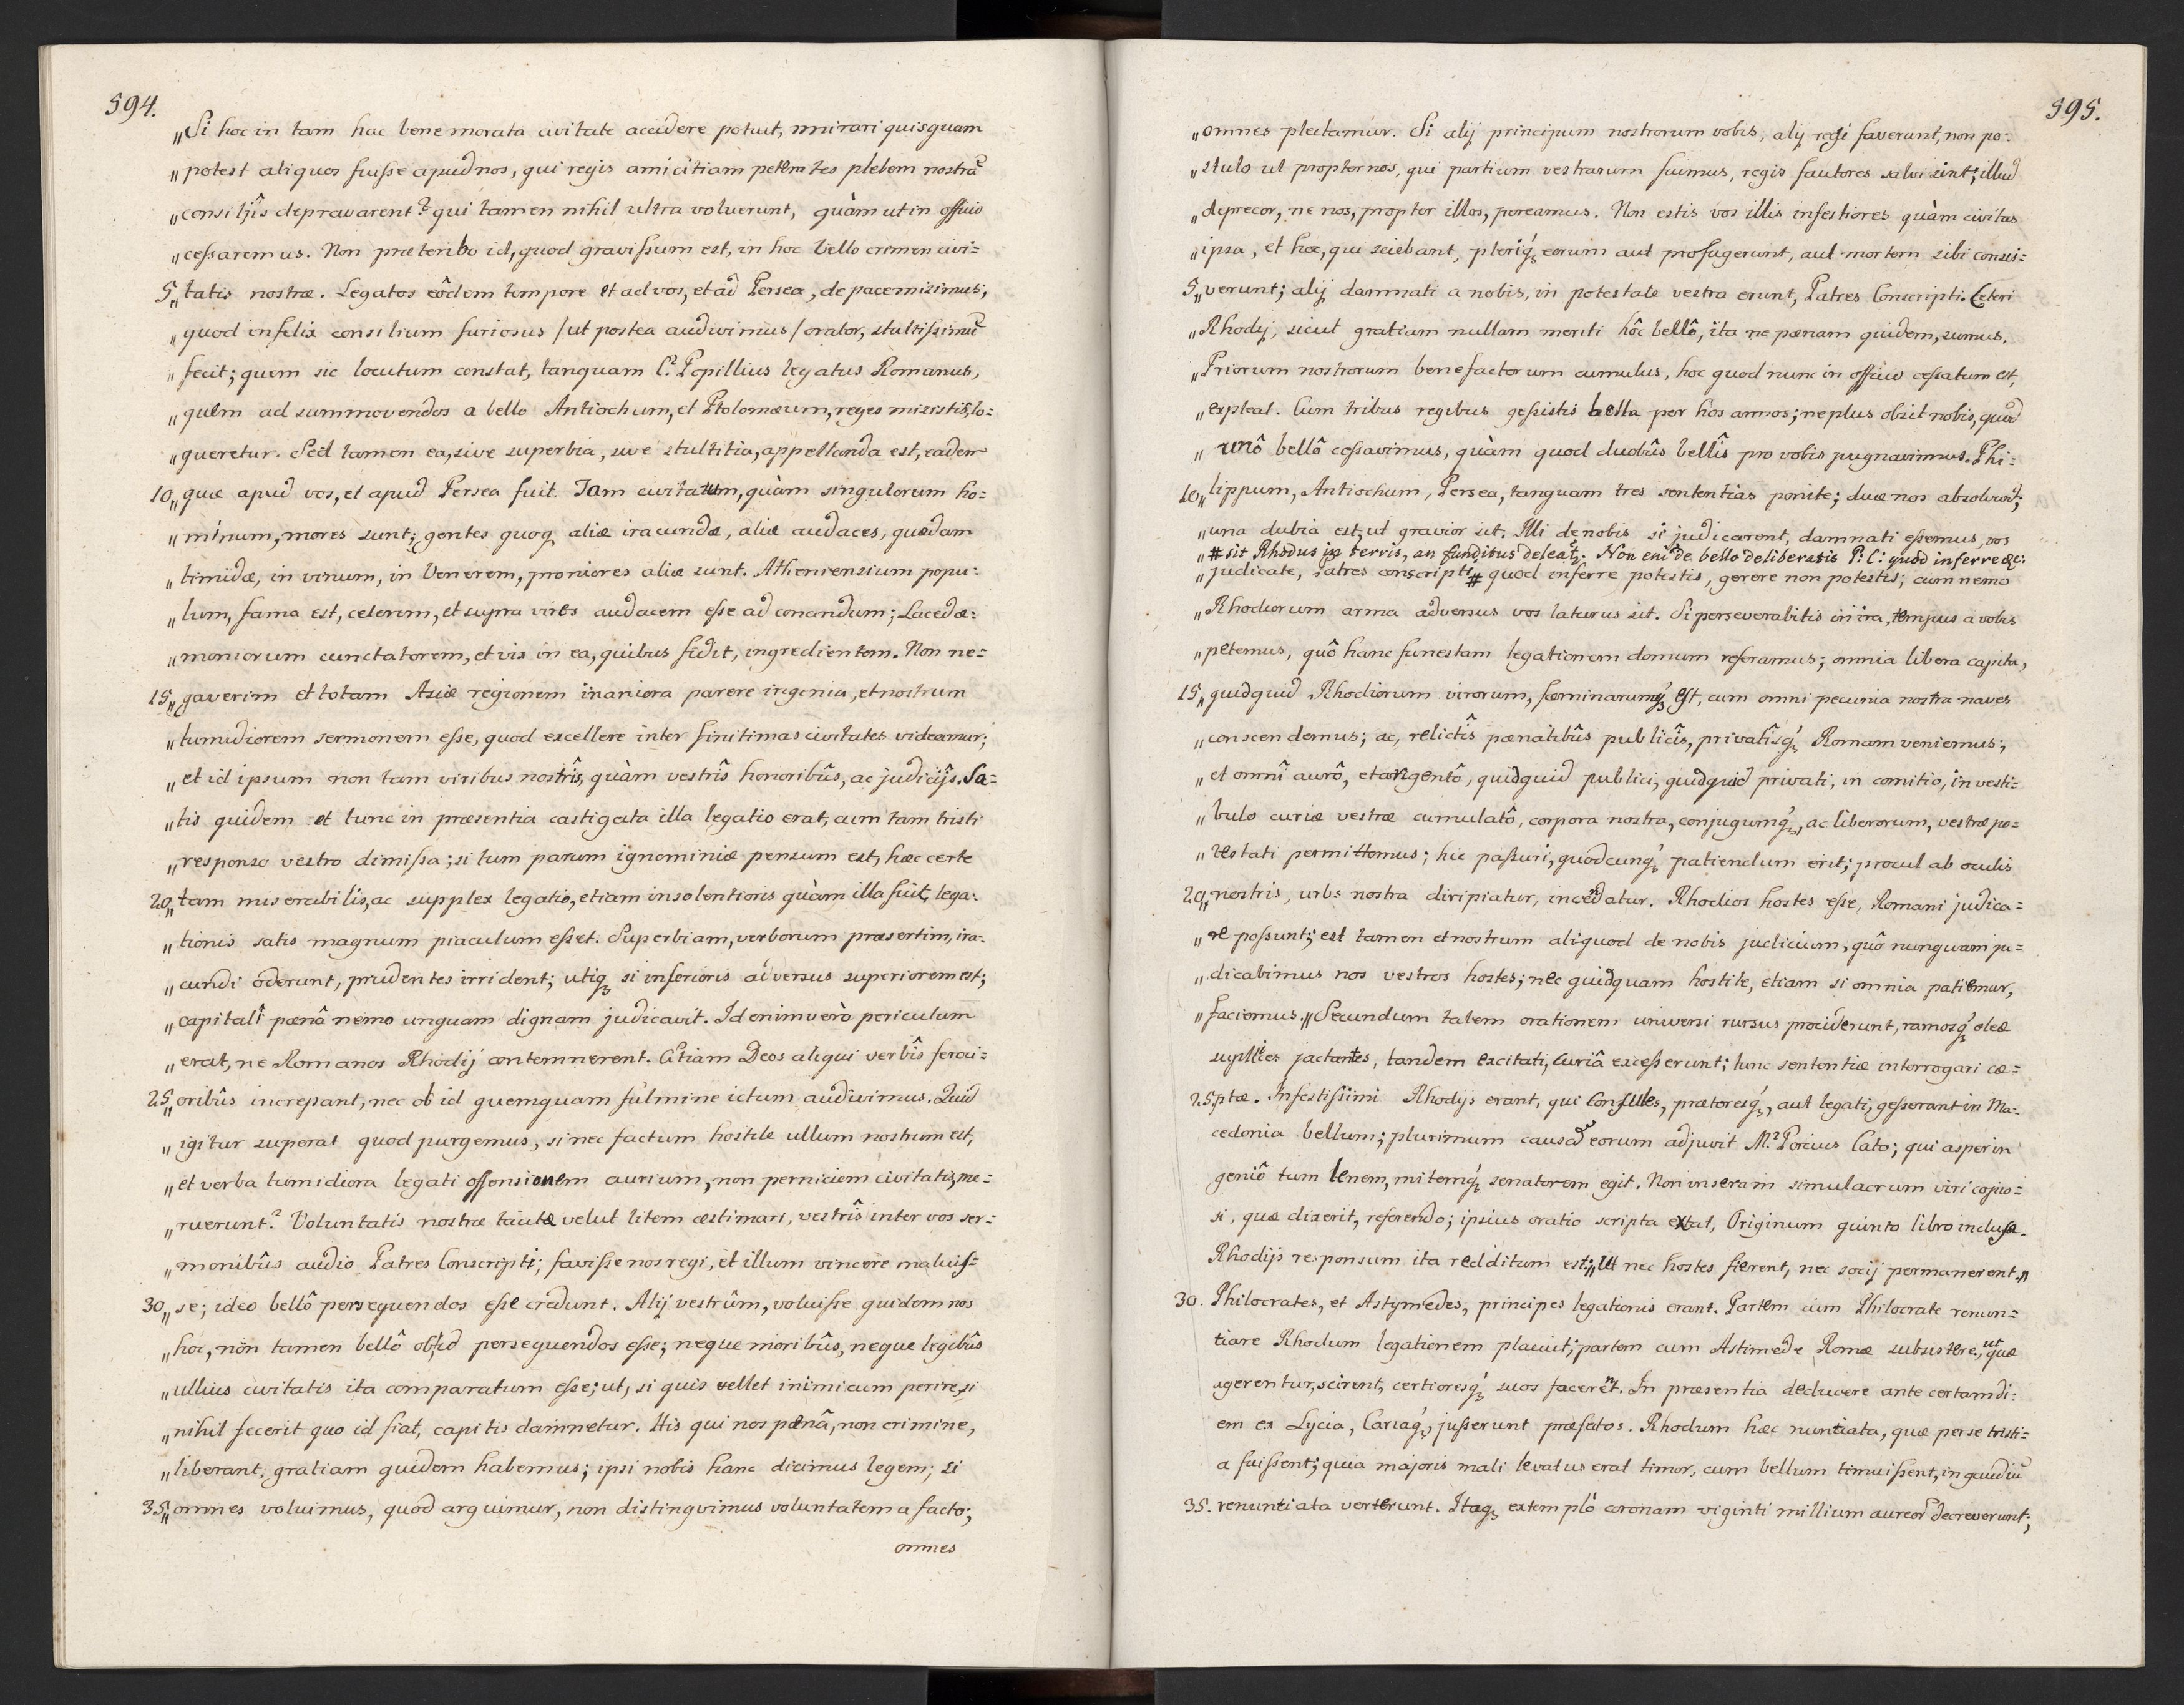 594.
„Si hoc in tam hac bene morata civitate accidere potuit, mirari quisquam
„potest aliquos fuisse apud nos, qui regis amicitiam petentes plebem nostrã
„consilijs depravarent? qui tamen nihil ultra voluerunt, quàm ut in officio
„cessaremus. Non præteribo id, quod gravissum est, in hoc bello crimen civi=
5„tatis nostræ. Legatos eôdem tempore et ad vos, et ad Persea, de pace misimus;
„quod infelix consilium furiosus /ut postea audivimus/ orator, stultissimũ
„fecit; quem sic locutum constat, tanquam C.² Popillius legatus Romanus,
„quem ad summovendos a bello Antiochum, et Ptolomæum, reges misistis, lo=
„queretur. Sed tamen ea, sive superbia, sive stultitia, appellanda est, eadem
10„quæ apud vos, et apud Persea fuit. Jam civitatum, quàm singulorum ho=
„minum, mores sunt; gentes quoqȝ aliæ iracundæ, aliæ audaces, quædam
„timidæ, in vinum, in Venerem, proniores aliæ sunt. Atheniensium popu=
„lum, fama est, celerem, et supra vires audacem esse ad conandum; Lacedæ=
„moniorum cunctatorem, et vix in ea, quibus fidit, ingredientem. Non ne=
15„gaverim et totam Asiæ regionem inaniora parere ingenia, et nostrum
„tumidiorem sermonem esse, quod excellere inter finitimas civitates videamur;
„et id ipsum non tam viribus nostrîs, quàm vestrîs honoribûs, ac judicijs. Sa=
„tis quidem et tunc in præsentia castigata illa legatio erat, cum tam tristi
„responso vestro dimissa; si tum parum ignominiæ pensum est, hæc certe
20„tam miserabilis, ac supplex legatio, etiam insolentioris quàm illa fuit, lega=
„tionis satis magnum piaculum esset. Superbiam, verborum præsertim, ira=
„cundi oderunt, prudentes irrident; utiqȝ si inferioris adversus superiorem est;
„capitalî pænâ nemo unquam dignam judicavit. Id enimverò periculum
„erat, ne Romanos Rhodij contemnerent. Etiam Deos aliqui verbîs feroci=
25„oribûs increpant, nec ob id quemquam fulmine ictum audivimus. Quid
„igitur superat quod purgemus, si nec factum hostile ullum nostrum est,
„et verba tumidiora legati offensionem aurium, non perniciem civitatis, me=
„ruerunt? Voluntatis nostræ tacitæ velut litem æstimari, vestrîs inter vos ser=
„monibûs audio Patres Conscripti; favisse nos regi, et illum vincere maluis=
30„se; ideo bellô persequendos esse credunt. Alij vestrûm, voluisse quidem nos
„hoc, non tamen bellô ob id persequendos esse; neque moribûs, neque legibûs
„ullius civitatis ita comparatum esse; ut, si quis vellet inimicum perire, si
„nihil fecerit quo id fiat, capitis damnetur. His qui nos pænâ, non crimine,
„liberant, gratiam quidem habemus; ipsi nobis hanc dicimus legem; si
35„omnes voluimus, quod arguimur, non distingvimus voluntatem a facto;
omnes
595.
„omnes plectamur. Si alij principum nostrorum vobis, alij regi faverunt, non po=
„stulo ut propter nos, qui partium vestrarum fuimus, regis fautores salvi sint; illud
„deprecor, ne nos, propter illos, pereamus. Non estis vos illis infestiores quàm civitas
„ipsa, et hoc, qui sciebant, pleriqȝ eorum aut profugerunt, aut mortem sibi consci=
5„verunt; alij damnati a nobis, in potestate vestra erunt, Patres Conscripti. Ceteri
„Rhodij, sicut gratiam nullam meriti hôc bellô, ita ne pænam quidem, sumus.
„Priorum nostrorum benefactorum cumulus, hoc quod nunc in officio cessatum est,
„expleat. Cum tribus regibus gessistis bella per hos annos; ne plus obsit nobis, quod
„unô bellô cessavimus, quàm quod duobûs bellîs pro vobis pugnavimus. Phi=
10„lippum, Antiochum, Persea, tanquam tres sententias ponite; duæ nos absolvunt;
„una dubia est, ut gravior sit. Illi de nobis si judicarent, damnati essemus, vos
„# sit Rhodus in terris, an funditus deleat.r Non enĩ de bello deliberatis P: C: quod inferre &c:
„judicate, Patres conscripti # quod inferre potestis, gerere non potestis; cum nemo
„Rhodiorum arma adversus vos laturus sit. Si perseverabitis in ira, tempus a vobis
„petemus, quô hanc funestam legationem domum referamus; omnia libera capita,
15„quidquid Rhodiorum virorum, fæminarumqȝ est, cum omni pecunia nostra naves
„conscendemus; ac, relictîs pænatibûs publicîs, privatîsqȝ Romam veniemus;
„et omnî aurô, et argentô, quidquid publici, quidquid privati, in comitio, in vesti=
„bulo curiæ vestræ cumulatô, corpora nostra, conjugumqȝ, ac liberorum, vestræ po=
„testati permittemus; hic passuri, quodcunqȝ patiendum erit; procul ab oculis
20„nostris, urbs nostra diripiatur, incendatur. Rhodios hostes esse, Romani judica=
„re possunt; est tamen et nostrum aliquod de nobis judicium, quô nunquam ju=
„dicabimus nos vestros hostes; nec quidquam hostile, etiam si omnia patiemur,
„faciemus.„ Secundum talem orationem universi rursus prociderunt, ramosqȝ oleæ
supplices jactantes, tandem excitati, curiâ excesserunt; tunc sententiæ interrogari cæ=
25.ptæ. Infestissimi Rhodijs erant, qui Consules, prætoresqȝ, aut legati, gesserant in Ma=
cedonia bellum; plurimum causã eorum adjuvit M.² Porcius Cato; qui asper in
geniô tum lenem, mitemqȝ senatorem egit. Non inseram simulacrum viri copio=
si, quæ dixerit, referendo; ipsius oratio scripta extat, Originum quinto libro inclusa.
Rhodijs responsum ita redditum est; „Ut nec hostes fierent, nec socij permanerent.„
30. Philocrates, et Astymedes, principes legationis erant. Partem cum Philocrate renun=
tiare Rhodum legationem placuit; partem cum Astimede Romæ subsistere, ut quæ
agerentur, scirent, certioresqȝ suos facerent. In præsentia deducere ante certam di=
em ex Lycia, Cariaqȝ, jusserunt præfatos. Rhodum hæc nuntiata, quæ per se tristi=
a fuissent; quia majoris mali levatus erat timor, cum bellum timuissent, in gaudiũ
35. renuntiata verterunt. Itaqȝ extemplô coronam viginti millium aureor̃ decreverunt;